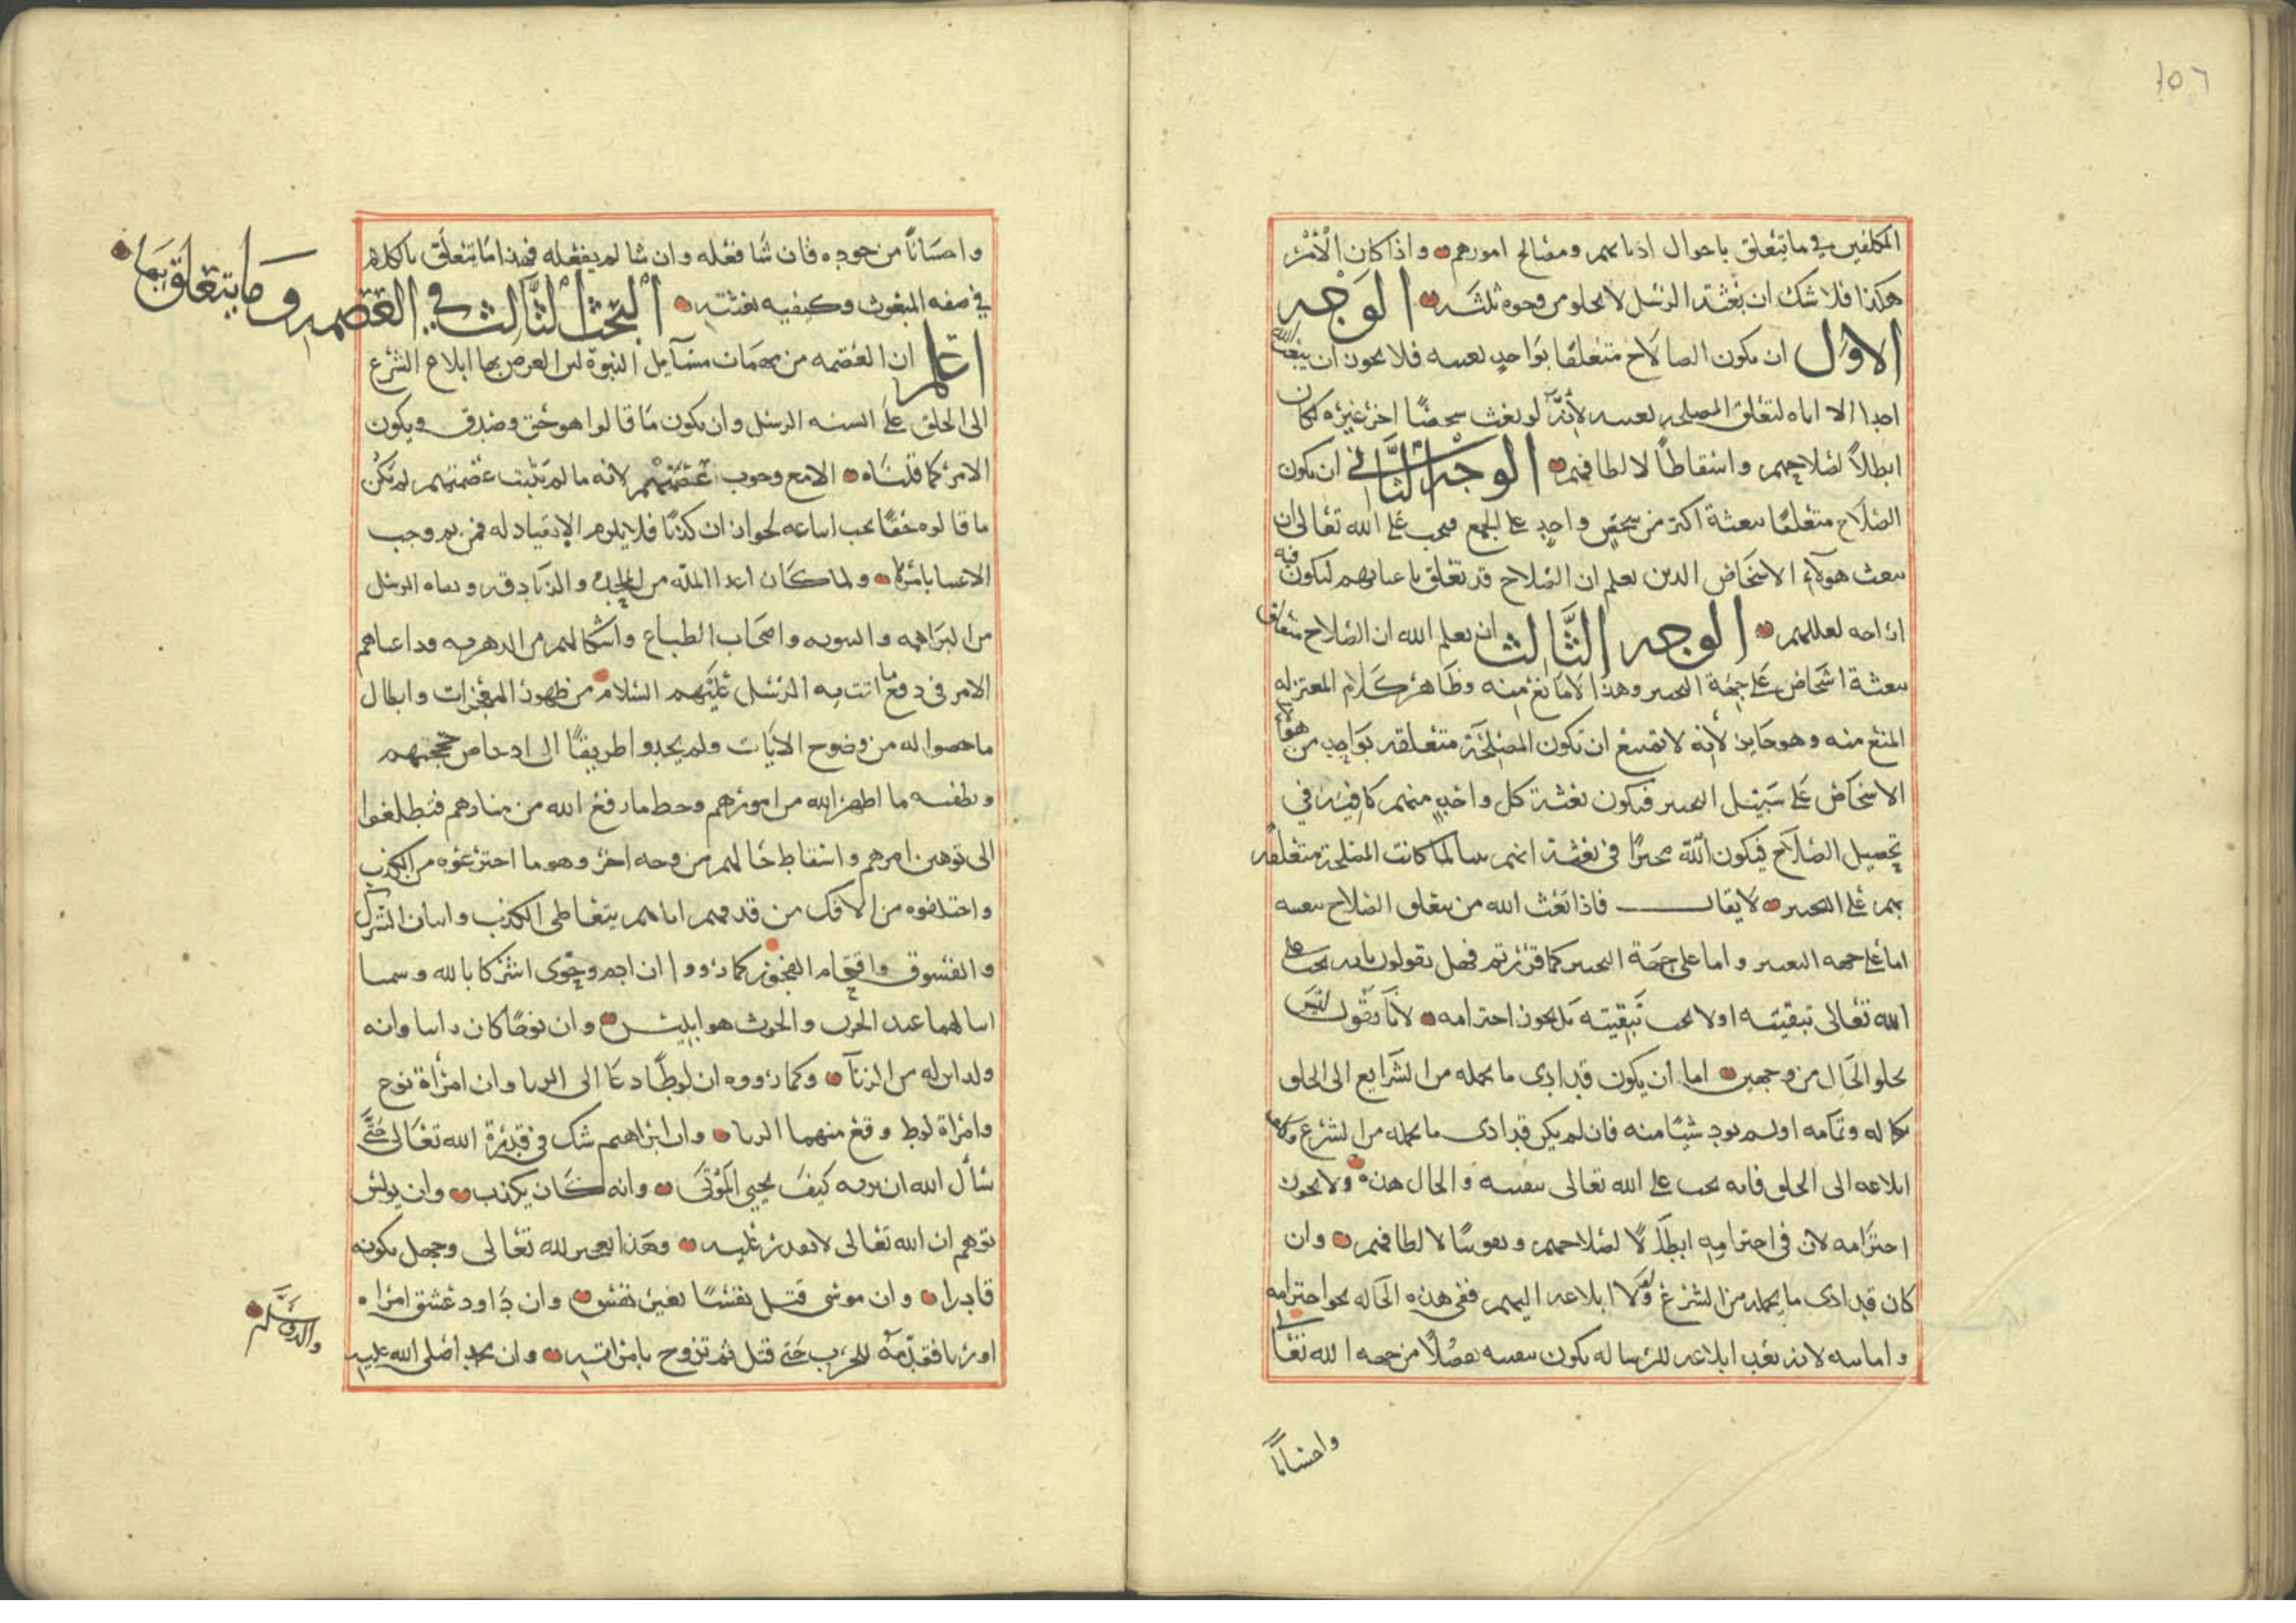 ١٥٦
المكلفين في ما يتعلق باحوال اديانهم ومصالح امورهم واذا كان الأمر
هكذا فلا شك ان بعثة الرسل لا يخلو من وجوه ثلثة الوجه
الاول ان يكون الصلاح متعلقا بواحد بعينه فلا يجوز ان يبعث الله
احدا الا اياه لتعلق المصلحه بعينه لأنه لو بعث شخصًا اخر غيره لكان
ابطالاً لصلاحهم واسقاطاً لالطافهم الوجه الثاني ان يكون
الصلاح متعلقًا ببعثة اكثر من شخص واحد على الجمع فيجب على الله تعالى ان
يبعث هولاء الاشخاص الذين يعلم ان الصلاح قد تعلق باعيانهم ليكون فيه
ازاحه لعللهم الوجه الثالث ان يعلم الله ان الصلاح متعلق
ببعثة اشخاص على جهة التخيير وهذا لا مانع منه وظاهر كلام المعتزله
المنع منه وهو جايز لأنه لا يمتنع ان تكون المصلحة متعلقه بواحد من هؤلاء
الاشخاص على سبيل التخيير فيكون بعثة كل واحد منهم كافيه في
تحصيل الصلاح فيكون الله مخيرًا في بعثة ايهم شا لما كانت المصلحة متعلقه
بهم على التخيير لا يقال فاذا بعث الله من يتعلق الصلاح ببعثه
اما على جهه التعيين واما على جهة التخيير كما قررتم فهل تقولون بانه يجب على
الله تعالى تبقيته او لا يجب تبقيته بل يجوز اخترامه لأنا نقول ليس
يخلو الحال من وجهين اما ان يكون قد ادى ما يحمله من الشرايع الى الخلق
بكماله وتمامه او لم يود شيئًا منه فان لم يكن قد ادى ما يحمله من الشرع ولا
ابلاغه الى الخلق فانه يجب على الله تعالى تبقيته والحال هذه ولا يجوز
اخترامه لان في اخترامه ابطالًا لصلاحهم وتفويتًا لالطافهم وان
كان قد ادى ما يحمله من الشرع وكملا ابلاغه اليهم ففي هذه الحاله يجوز اخترامه
واماتته لانه بعد ابلاغه للرساله يكون تبقيته تفضلًا من جهه الله تعالى
واحسانًا
واحسانًا من جوده فان شا فعله وان شا لم يفعله فهذا ما يتعلق بالكلام
في صفه المبعوث وكيفيه بعثته البحث الثالث في العصمه وما يتعلق بها
اعلم ان العصمه من مهمات مسآيل النبوة لان الغرض بها ابلاغ الشرع
الى الخلق على السنه الرسل وان يكون ما قالوا هو حق وصدق ويكون
الامر كما قلناه الا مع وجوب عصمتهم لانه ما لم يثبت عصمتهم لم يكن
ما قالوه حقًا يجب اتباعه لجواز ان كذبًا فلا يلزم الانقياد له فمن ثم وجب
الاعتنا بامرها ولما كان اعدا المله من الملحدة والزنادقه ونفاه الرسل
من البراهمه والثنويه واصحاب الطباع واشكالهم من الدهريه وداعياهم
الامر في دفع ما اتت به الرسل عليهم السلام من ظهور المعجزات وابطال
ما خصوا له من وضوح الايات ولم يجدوا طريقًا الى ادحاض حججهم
وتطفيه ما اظهر الله من امورهم وحط ما رفع الله من منارهم فتطلعوا
الى توهين امرهم واسقاط حالهم من وجه اخر وهو ما اخترعوه من الكذب
واختلقوه من الافك من قدحهم اياهم بتعاطي الكذب واتيان الشرك
والفسوق واقتحام الفجور كما رووا ان ادم وحوى اشركا بالله وسميا
ابنا لهما عبد الحرث والحرث هو ابليس وان نوحًا كان وانه
ولد ابن له من الزنا وكما رووه ان لوطًا دعا الى الزنا وان امرأة نوح
وامراة لوط وقع منهما الزنا وان ابراهيم شك في قدرة الله تعالى حتى
سأل الله ان يريه كيف يحيي الموتى وانه كان يكذب وان يونس
توهم ان الله تعالى لا يقدر عليه وهذا تعجيز لله تعالى وجهل بكونه
قادرا وان موسى قتل نفسًا بغير نفس وان داود عشق امراه
اوريا فقدّمه للحرب حتى قتل ثم تزوج بامراته وان محمدا صلى الله عليه
واله وسلم